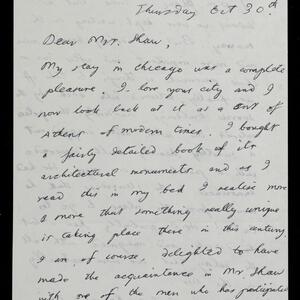 Thursday Oct 30th.
Dear Mrs. Shaw,
My stay in Chicago was a complete
pleasure. I love your city and I
now look back at it as a sort of
Athens of modern times. I bought
a fairly detailed book of its
architectural monuments and as I
read this in my bed I realise more
& more that something really unique
is taking place there in this century.
I am of course, delighted to have
made the acquaintance in Mr Shaw
with one of the men who has participated